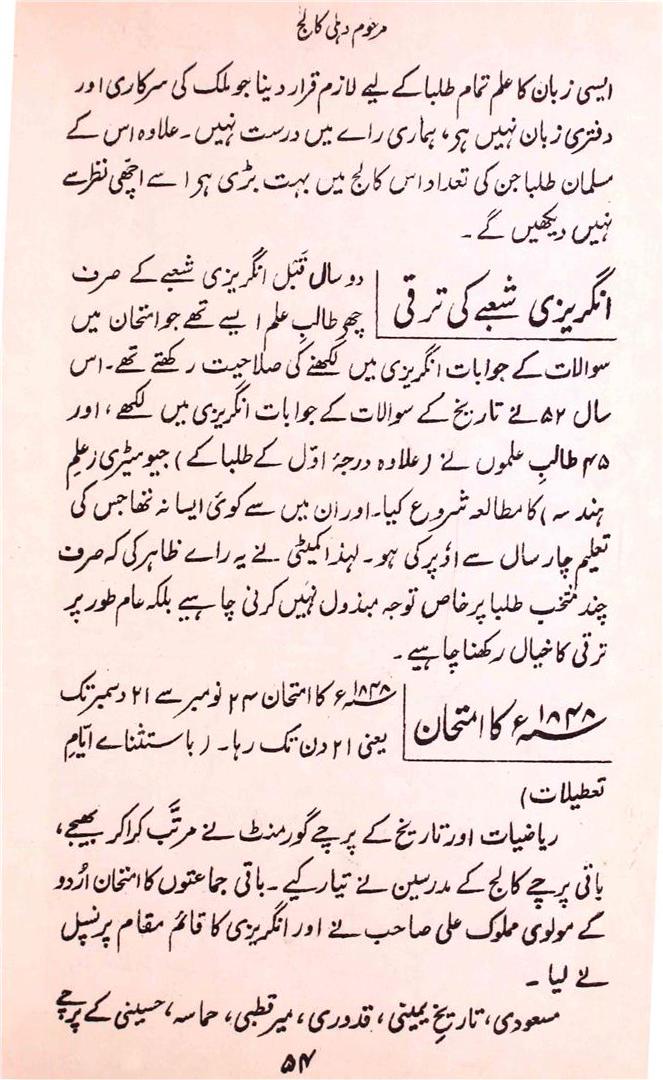 مرحوم دہلی کالج
ایسی زبان کا علم تمام طلبا کے لیے لازم قرار دینا جو ملک کی سرکاری اور
دفتری زبان نہیں ہر، ہماری راے میں درست نہیں۔ علاوہ اس کے
مسلمان طلبا جن کی تعداد اس کالج میں بہت بڑی ہر اسے اچھی نظر سے
نہیں دیکھیں گے۔
انگریزی شعبے کی ترقی
دو سال قبل انگریزی شعبے کے صرف
چھ طالبِ علم ایسے تھے جو امتحان میں
سوالات کے جوابات انگریزی میں لکھنے کی صلاحیت رکھتے تھے۔ اس
سال ۵۲ نے تاریخ کے سوالات کے جوابات انگریزی میں لکھے، اور
۴۵ طالبِ علموں نے (علاوہ درجۂ اوّل کے طلبا کے) جیومیٹری (علمِ
ہندسہ) کا مطالعہ شروع کیا۔ اور ان میں سے کوئی ایسا نہ تھا جس کی
تعلیم چار سال سے اُوپر کی ہو۔ لہٰذا کمیٹی نے یہ راے ظاہر کی کہ صرف
چند منتخب طلبا پر خاص توجہ مبذول نہیں کرنی چاہیے بلکہ عام طور پر
ترقی کا خیال رکھنا چاہیے۔
۱۸۴۸ء کا امتحان
۱۸۴۸ء کا امتحان ۲۴ نومبر سے ۲۱ دسمبر تک
یعنی ۲۱ دن تک رہا۔ (باستثناے ایّامِ
تعطیلات)
ریاضیات اور تاریخ کے پرچے گورمنٹ نے مرتّب کرا کر بھیجے،
باقی پرچے کالج کے مدرسین نے تیار کیے۔ باقی جماعتوں کا امتحان اُردو
کے مولوی مملوک علی صاحب نے اور انگریزی کا قائم مقام پرنسپل
نے لیا۔
مسعودی، تاریخِ یمینی، قدوری، میر قطبی، حماسہ، حسینی کے پرچے
۵۴